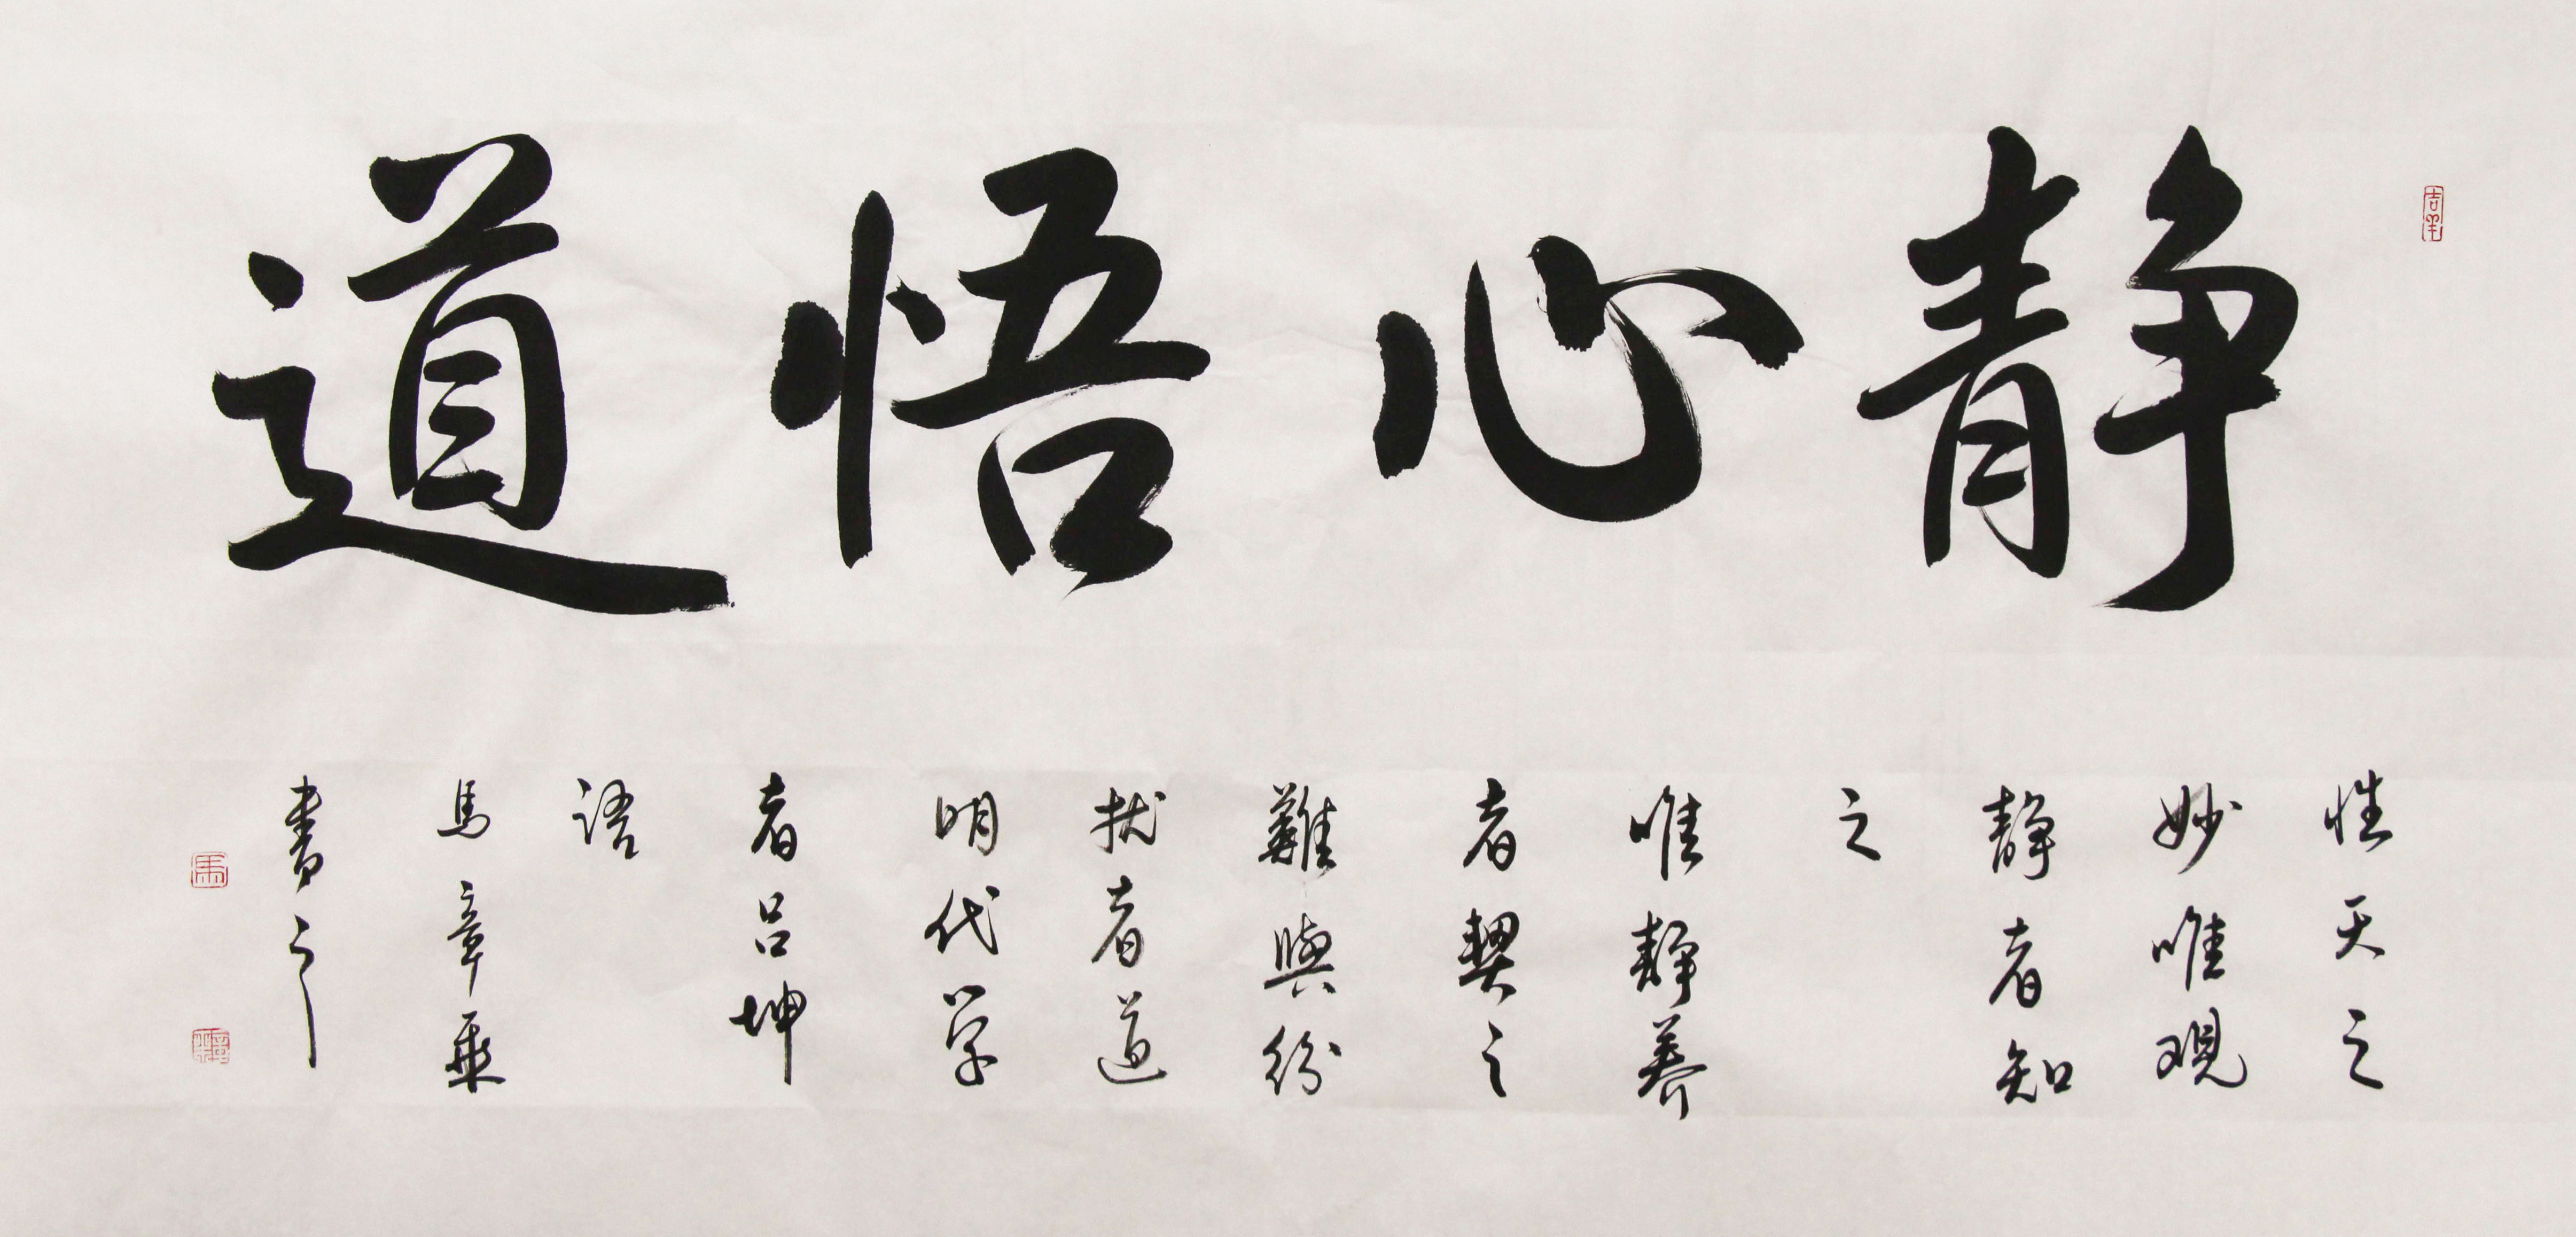 静心悟道
性天之
妙唯观
静者知
之
唯静养
者契之
難與纷
扰者道
明代学
者吕坤
語
馬章乘
書之